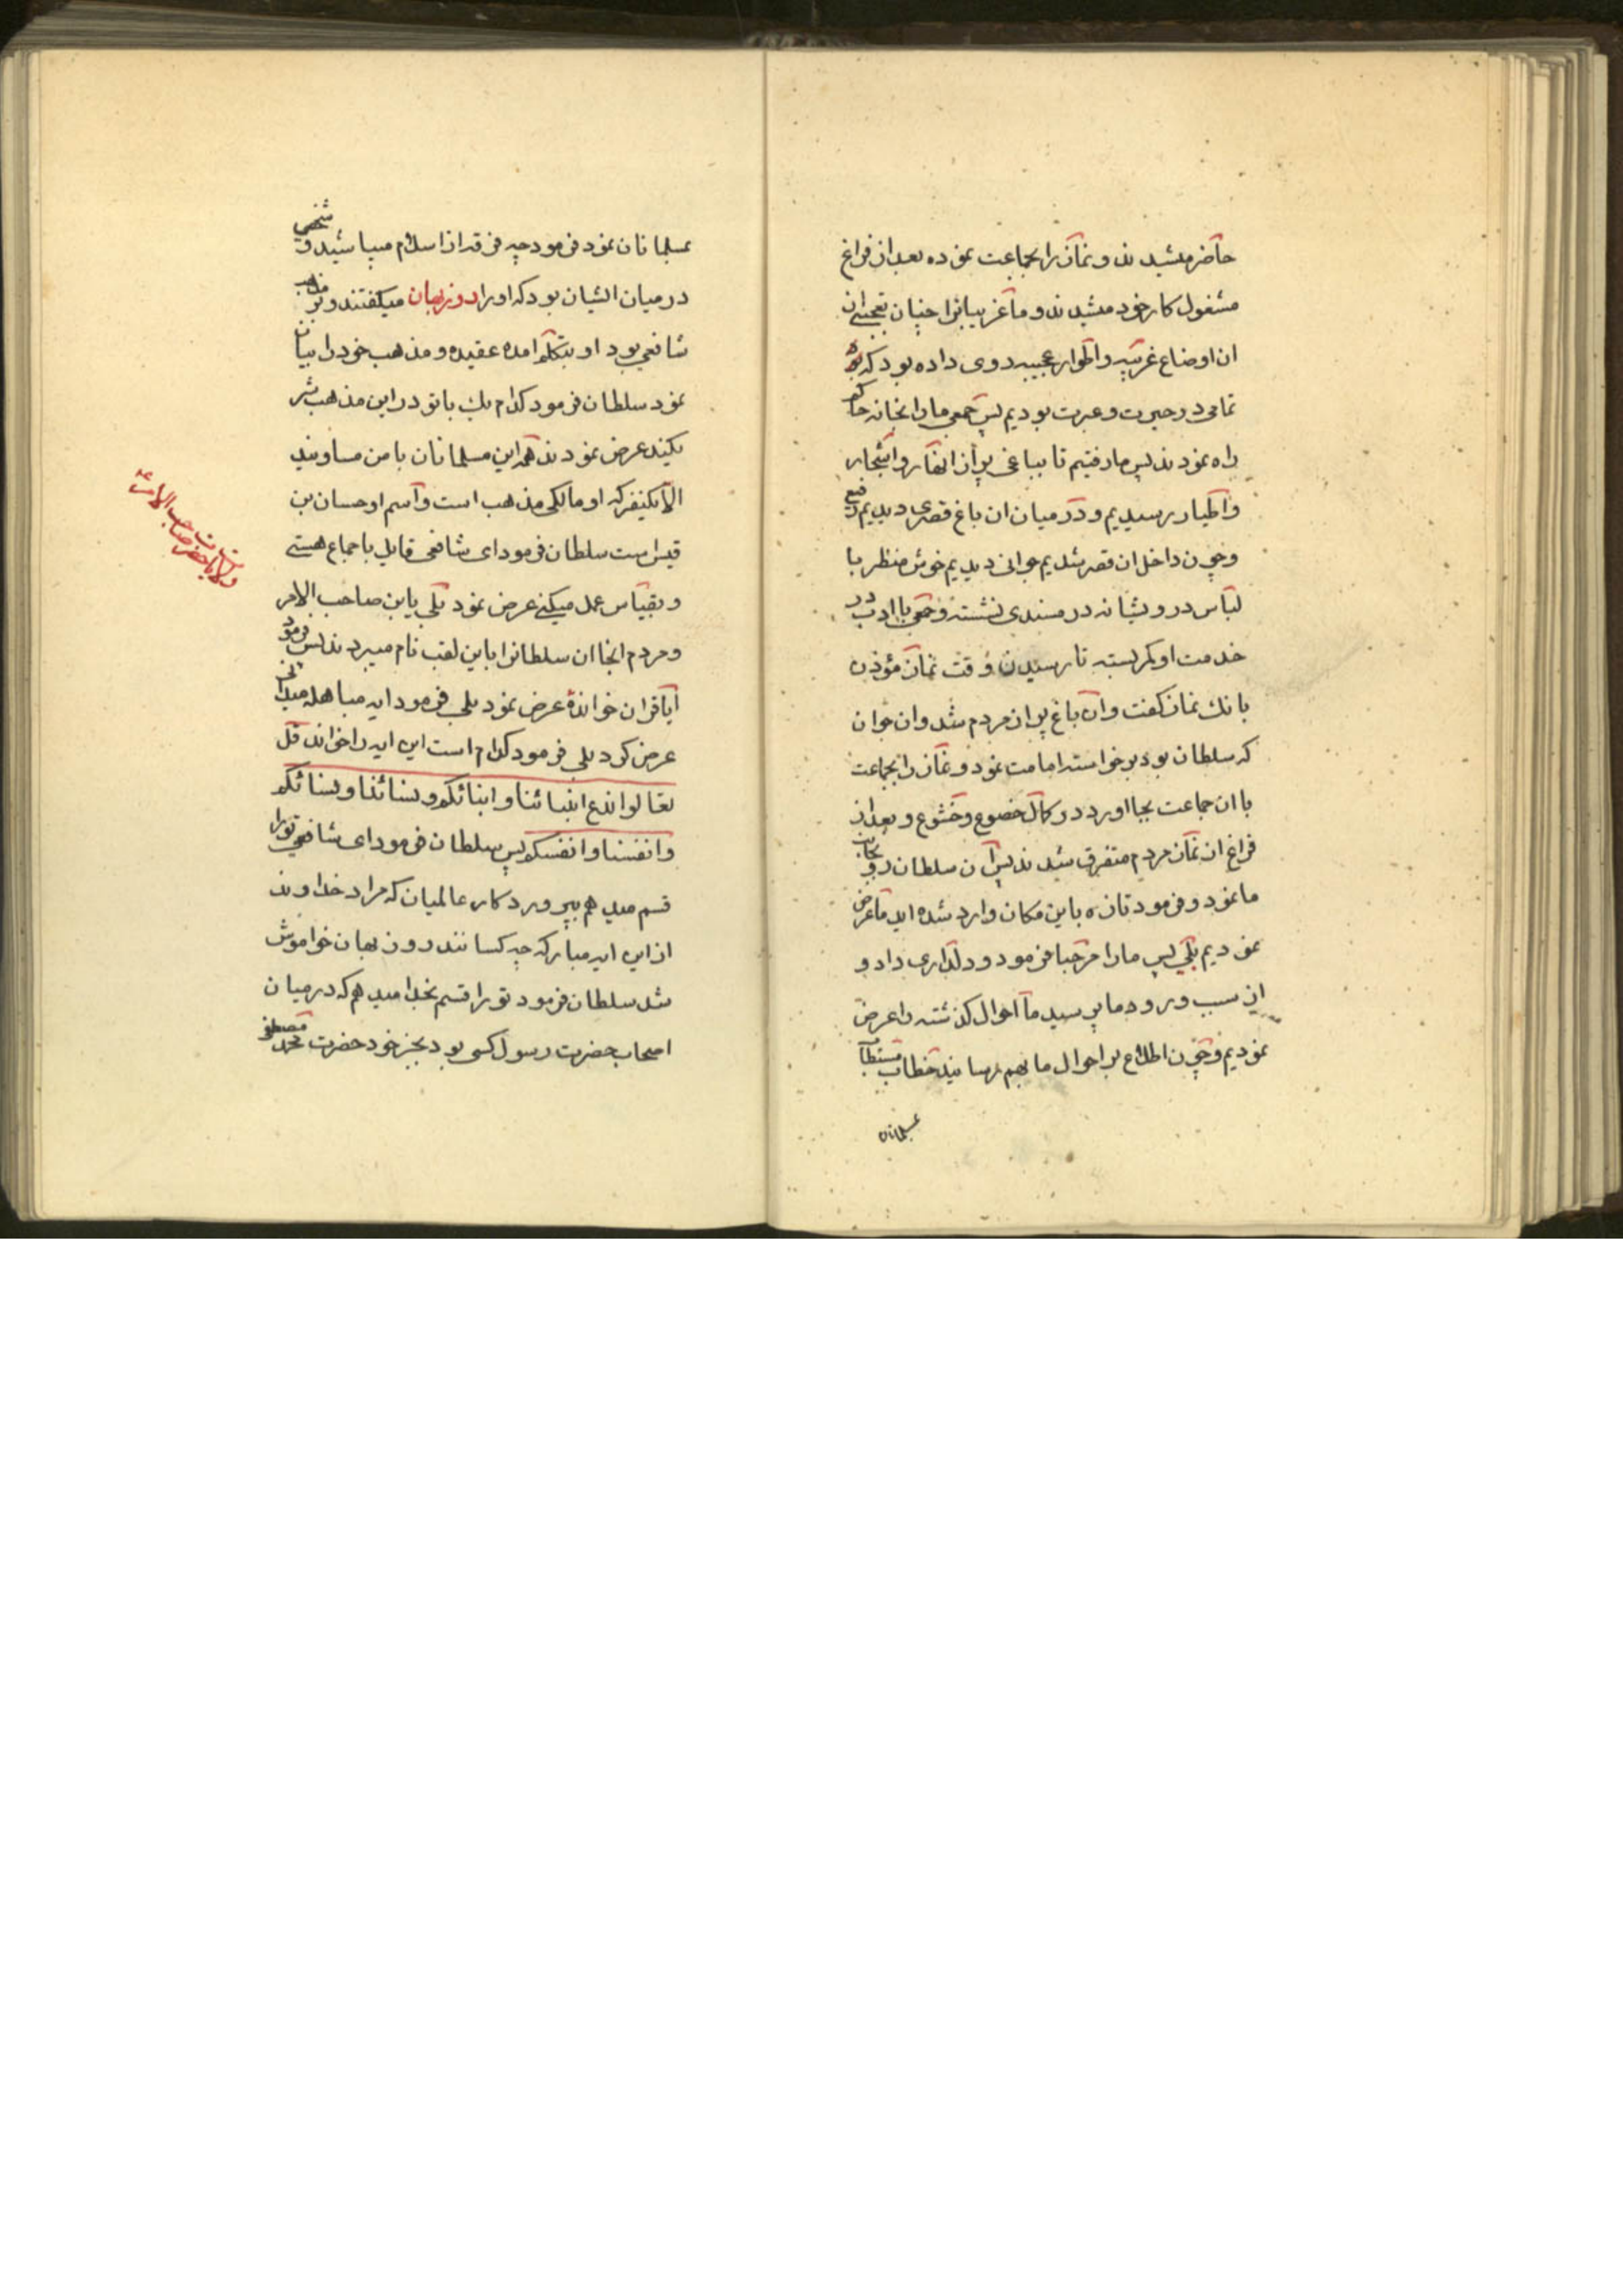 حاضر میشدند و نماز را بجماعت نموده بعد از فراغ
مشغول کار خود میشدند و ما غریبانرا چنان تعجبی از
ان اوضاع غریبه و اطوار عجیبه روی داده بود که
تمامی در حیرت و عبرت بودیم پس جمعی ما را بخانه حاکم
راه نمودند پس ما رفتیم تا بباغی پر از انهار و اشجار
و اطیار رسیدیم و در میان ان باغ قصری دیدیم رفیع
و چون داخل ان قصر شدیم جوانی دیدیم خوش منظر با
لباس درویشانه در مسندی نشسته و جمعی با ادب در
خدمت او کمر بسته تا رسیدن وقت نماز مؤذن
بانك نماز کفت و ان باغ پر از مردم شد و ان جوان
که سلطان بود برخواسته امامت نمود و نماز را بجماعت
با ان جماعت بجا اورد در کمال خضوع و خشوع و بعد از
فراغ از نماز مردم متفرق شدند پس ان سلطان رو بجانب
ما نمود و فرمود تازه باین مکان وارد شده اید ما عرض
نمودیم بلی پس ما را مرحبا فرمود و دلداری داد و
از سبب ورود ما پرسید ما احوال کذشته را عرض
نمودیم و چون اطلاع بر احوال ما بهم رسانید خطاب مستطاب
بمسلمانان
بمسلمانان نمود فرمود چه فرقه از اسلام میباشید و شخصی
در میان ایشان بود که او را روزبهان میکفتند و بر مذهب
شافعی بود او بتکلم امده عقیده و مذهب خود را بیان
نمود سلطان فرمود کدام یك با تو در این مذهب شر
یکیند عرض نمودند همه این مسلمانان با من مساویند
الا یکنفر که او مالکی مذهب است و اسم او حسان بن
قیس است سلطان فرمود ای شافعی قایل باجماع هستی
و بقیاس عمل میکنی عرض نمود بلی یابن صاحب الامر
و مردم انجا ان سلطانرا باین لقب نام میبردند پس فرمود
ایا قران خوانده عرض نمود بلی فرمود ایه مباهله میدانی
عرض کرد بلی فرمود کدام است این ایه را خواند قل
تعالوا ندع ابنائنا و ابنائکم و نسائنا و نسائکم
و انفسنا و انفسکم پس سلطان فرمود ای شافعی تو را
قسم میدهم بپروردکار عالمیان که مراد خداوند
از این ایه مبارکه چه کسانند روزبهان خواموش
شد سلطان فرمود تو را قسم بخدا میدهم که در میان
اصحاب حضرت رسول کسی بود بجز خود حضرت محمد مصطفی
حضرت صاحب الامر